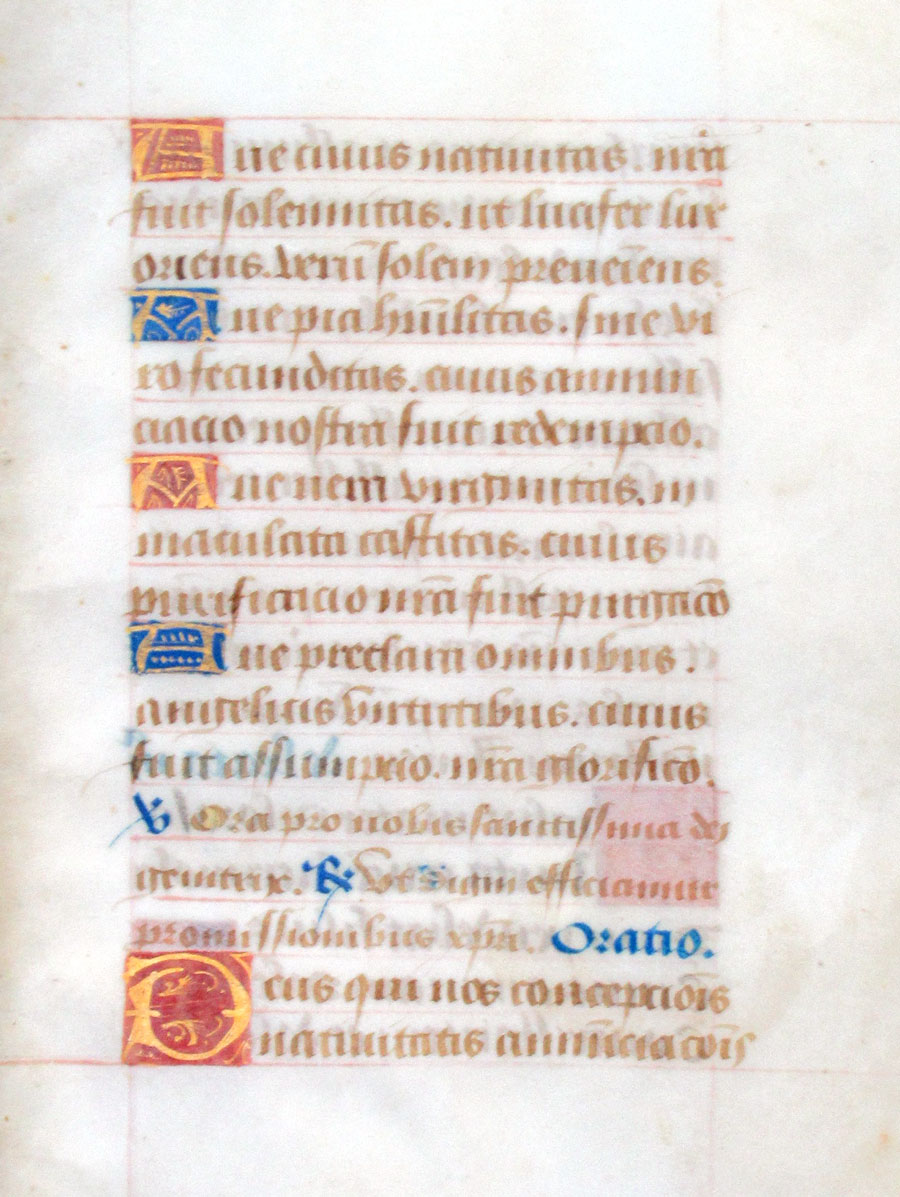 Aue cuius natiuitas. nr̄a
fuit solennitas. ut lucifer lux
oriens. verū solem preueniens.
Aue pia hūilitas. sine vi
ro fecunditas. cuius annun
ciacio nostra fuit redempcio.
Aue uera virginitas. im
maculata castitas. cuius
purificacio nr̄a fuit purgacō
Aue preclara omnibus.
angelicis virtutibus. cuius
fuit assumpcio. nr̄a glorificō.
℣ Ora pro nobis sanctissima dei
genitrix. ℟ Vt digni efficiamur
promissionibus xp̄i. Oratio.
Deus qui nos concepcionis
natiuitatis annūciacōis